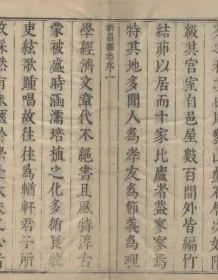 級其宮室自邑屋數百間外皆編竹
結茆以居而十家比廬者蓋家家焉
特其地多聞人為孝友為節義為理
新昌縣志序 一
學經濟文章代不絕書且風犄淳古
蒙被盛時涵濡培植之化多循良
吏絃歌踵唱故往往為輶軒君子所